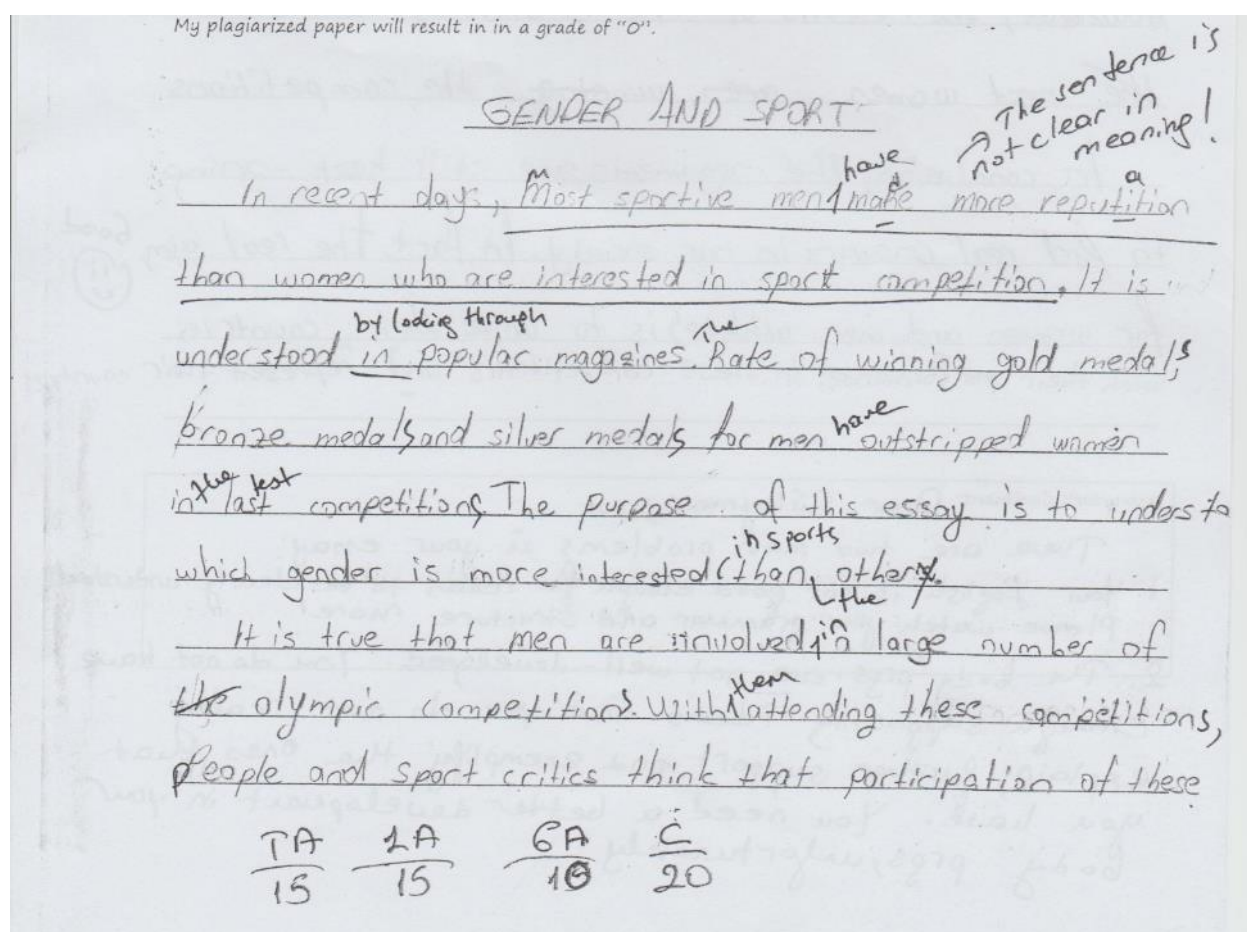 My plagiarized paper will result in in a grade of "0".
GENDER AND SPORT
The sentence is
not clear in
meaning!
m have d a
In recent days, Most sportive men make more reputition
than women who are interested in sport competition. It is
by looking through The
understood in popular magazines Rate of winning gold medals,
have
bronze medals and silver medals for men outstripped women
the test
in last competition, The purpose of this essay is to understa
in sports
which gender is more interested (than other.
the
in
It is true that men are involved large number of
them
the olympic competitions. With attending these competitions,
people and sport critics think that participation of these
TA 2A GA C
15 15 10 20